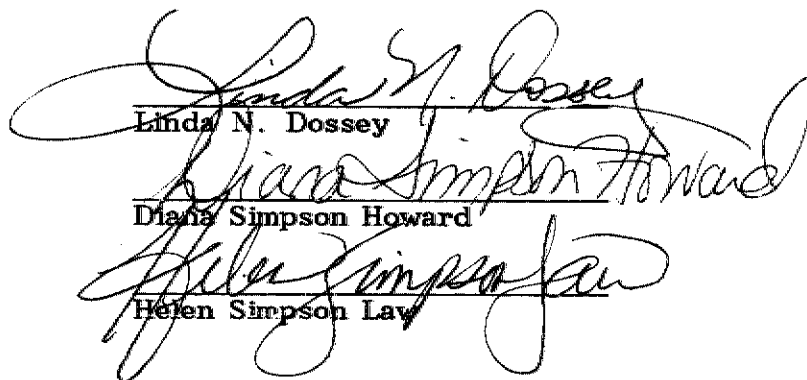 Linda N. Dossey
Linda N. Dossey
Diana Simpson Howard
Diana Simpson Howard
Helen Simpson Law
Helen Simpson Law